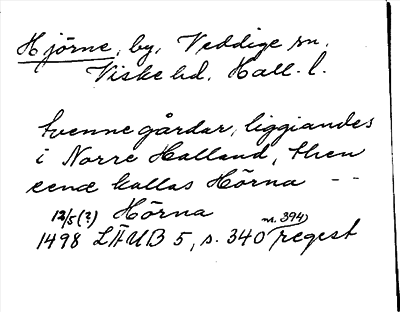 Hjörne, by, Veddige sn,
Viske hd. Hall. l.
tvenne gårdar, liggiandes
i Norre Halland, then
eene kallas Hörna --
12/5(?) Hörna
1498 LÄUB 5, s. 340 nr. 394) regest